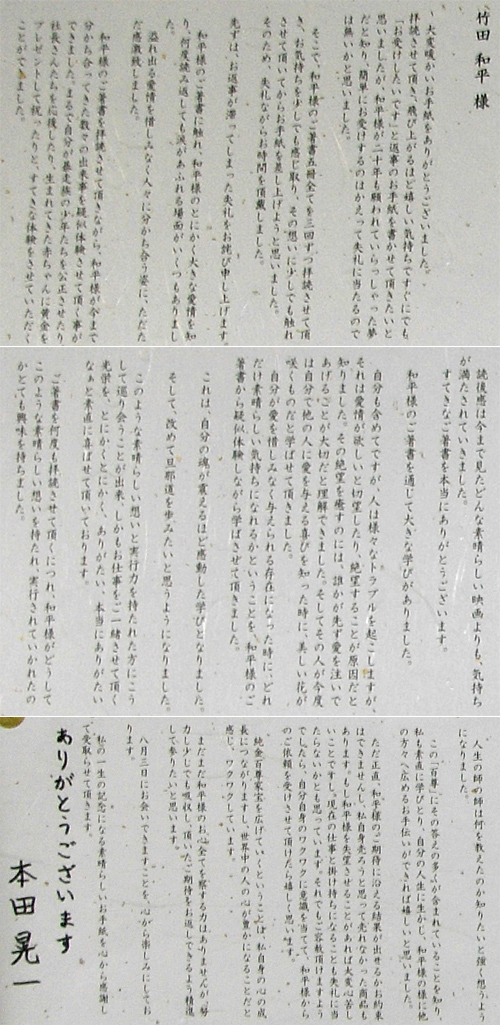 竹田 和平 様
大変暖かいお手紙をありがとうございました。
拝読させて頂き、飛び上がるほど嬉しい気持ちですぐにでも
「お受けしたいです」と返事のお手紙を書かせて頂きたいと
思いましたが、和平様が二十年も願われていらっしゃった夢
だと知り、簡単にお受けするのはかえって失礼に当たるので
は無いかと思いました。
そこで、和平様のご著書五冊全てを三回ずつ拝読させて頂
き、お気持ちを少しでも感じ取り、その想いに少しでも触れ
させて頂いてからお手紙を差し上げようと思いました。
そのため、失礼ながらお時間を頂戴しました。
先ずは、お返事が滞ってしまった失礼をお詫び申し上げます。
和平様のご著書に触れ、和平様のとにかく大きな愛情を知
り、何度読み返しても涙があふれる場面がいくつもありまし
た。
溢れ出る愛情を惜しみなく人々に分かち合う姿に、ただた
だ感激致しました。
和平様のご著書を拝読させて頂きながら、和平様が今まで
分かち合ってきた数々の出来事を疑似体験させて頂く事が
できました。まるで自分が暴走族の少年たちを公正させたり、
社長さんたちを応援したり、生まれてきた赤ちゃんに黄金を
プレゼントして祝ったりと、すてきな体験をさせていただく
ことができました。
読後感は今まで見たどんな素晴らしい映画よりも、気持ち
が満たされていきました。
すてきなご著書を本当にありがとうございます。
和平様のご著書を通じて大きな学びがありました。
自分も含めてですが、人は様々なトラブルを起こしますが、
それは愛情が欲しいと切望したり、絶望することが原因だと
知りました。その絶望を癒すのには、誰かが先ず愛を注いで
あげることが大切だと理解できました。そしてその人が今度
は自分で他の人に愛を与える喜びを知った時に、美しい花が
咲くものだと学ばせて頂きました。
自分が愛を惜しみなく与えられる存在になった時に、どれ
だけ素晴らしい気持ちになれるかということを、和平様のご
著書から疑似体験しながら学ばさせて頂きました。
これは、自分の魂が震えるほど感動した学びとなりました。
そして、改めて旦那道を歩みたいと思うようになりました。
このような素晴らしい想いと実行力を持たれた方にこう
して巡り会うことが出来、しかもお仕事をご一緒させて頂く
光栄を、とにかくとにかく、ありがたい、本当にありがたい
なぁと素直に喜ばせて頂いております。
ご著書を何度も拝読させて頂くにつれ、和平様がどうして
このような素晴らしい想いを持たれ、実行されていかれたの
かとても興味を持ちました。
人生の師の師は何を教えたのか知りたいと強く想うよう
になりました。
この「百尊」にその答えの多くが含まれていることを知り、
私も素直に学びとり、自分の人生に生かし、和平様の様に他
の方々へ広めるお手伝いができれば嬉しいと思いました。
ただ正直、和平様のご期待に沿える結果が出せるかお約束
はできませんし、私自身売ろうと思って売れなかった商品も
あります。もし和平様を失望させることがあれば大変心苦し
いことですし、現在の仕事と掛け持ちになることも失礼に当
たらないかとも思っています。それでもご容赦頂けますよう
でしたら、自分自身のワクワクに意識を当てて、和平様から
のご依頼を受けさせて頂けたら嬉しく思います。
純金百尊家宝を広げていくということは、私自身の心の成
長につながりますし、世界中の人の心が豊かになることだと
感じ、ワクワクしています。
まだまだ和平様のお心全てを察する力はありませんが、努
力し少しでも吸収し、頂いたご期待をお返しできるよう精進
して参りたいと思います。
八月三日にお会いできますことを、心から楽しみにしてお
ります。
私の一生の記念になる素晴らしいお手紙を心から感謝し
て受取らせて頂きます。
ありがとうございます
本田晃一